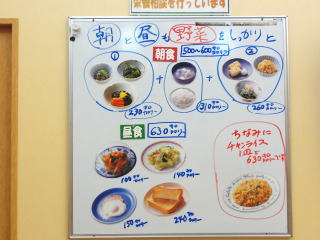 栄養相談を行っています
朝と昼も野菜をしっかりと
朝食 500〜600キロカロリー
① ②
+ +
230キロカロリー 310キロカロリー 260キロカロリー
昼食 630キロカロリー
100キロカロリー 140キロカロリー
150キロカロリー 240キロカロリー
ちなみに
チャハンライス
1皿で
630キロカロリーです